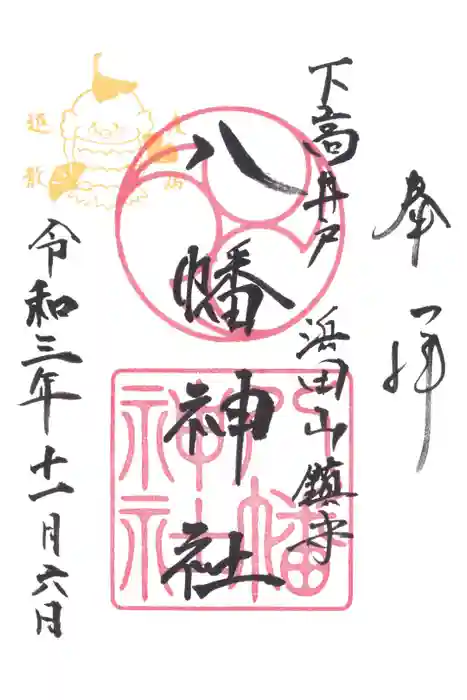 奉拝
下高井戸 浜田山鎮守
八幡神社
八幡神社
令和三年十一月六日